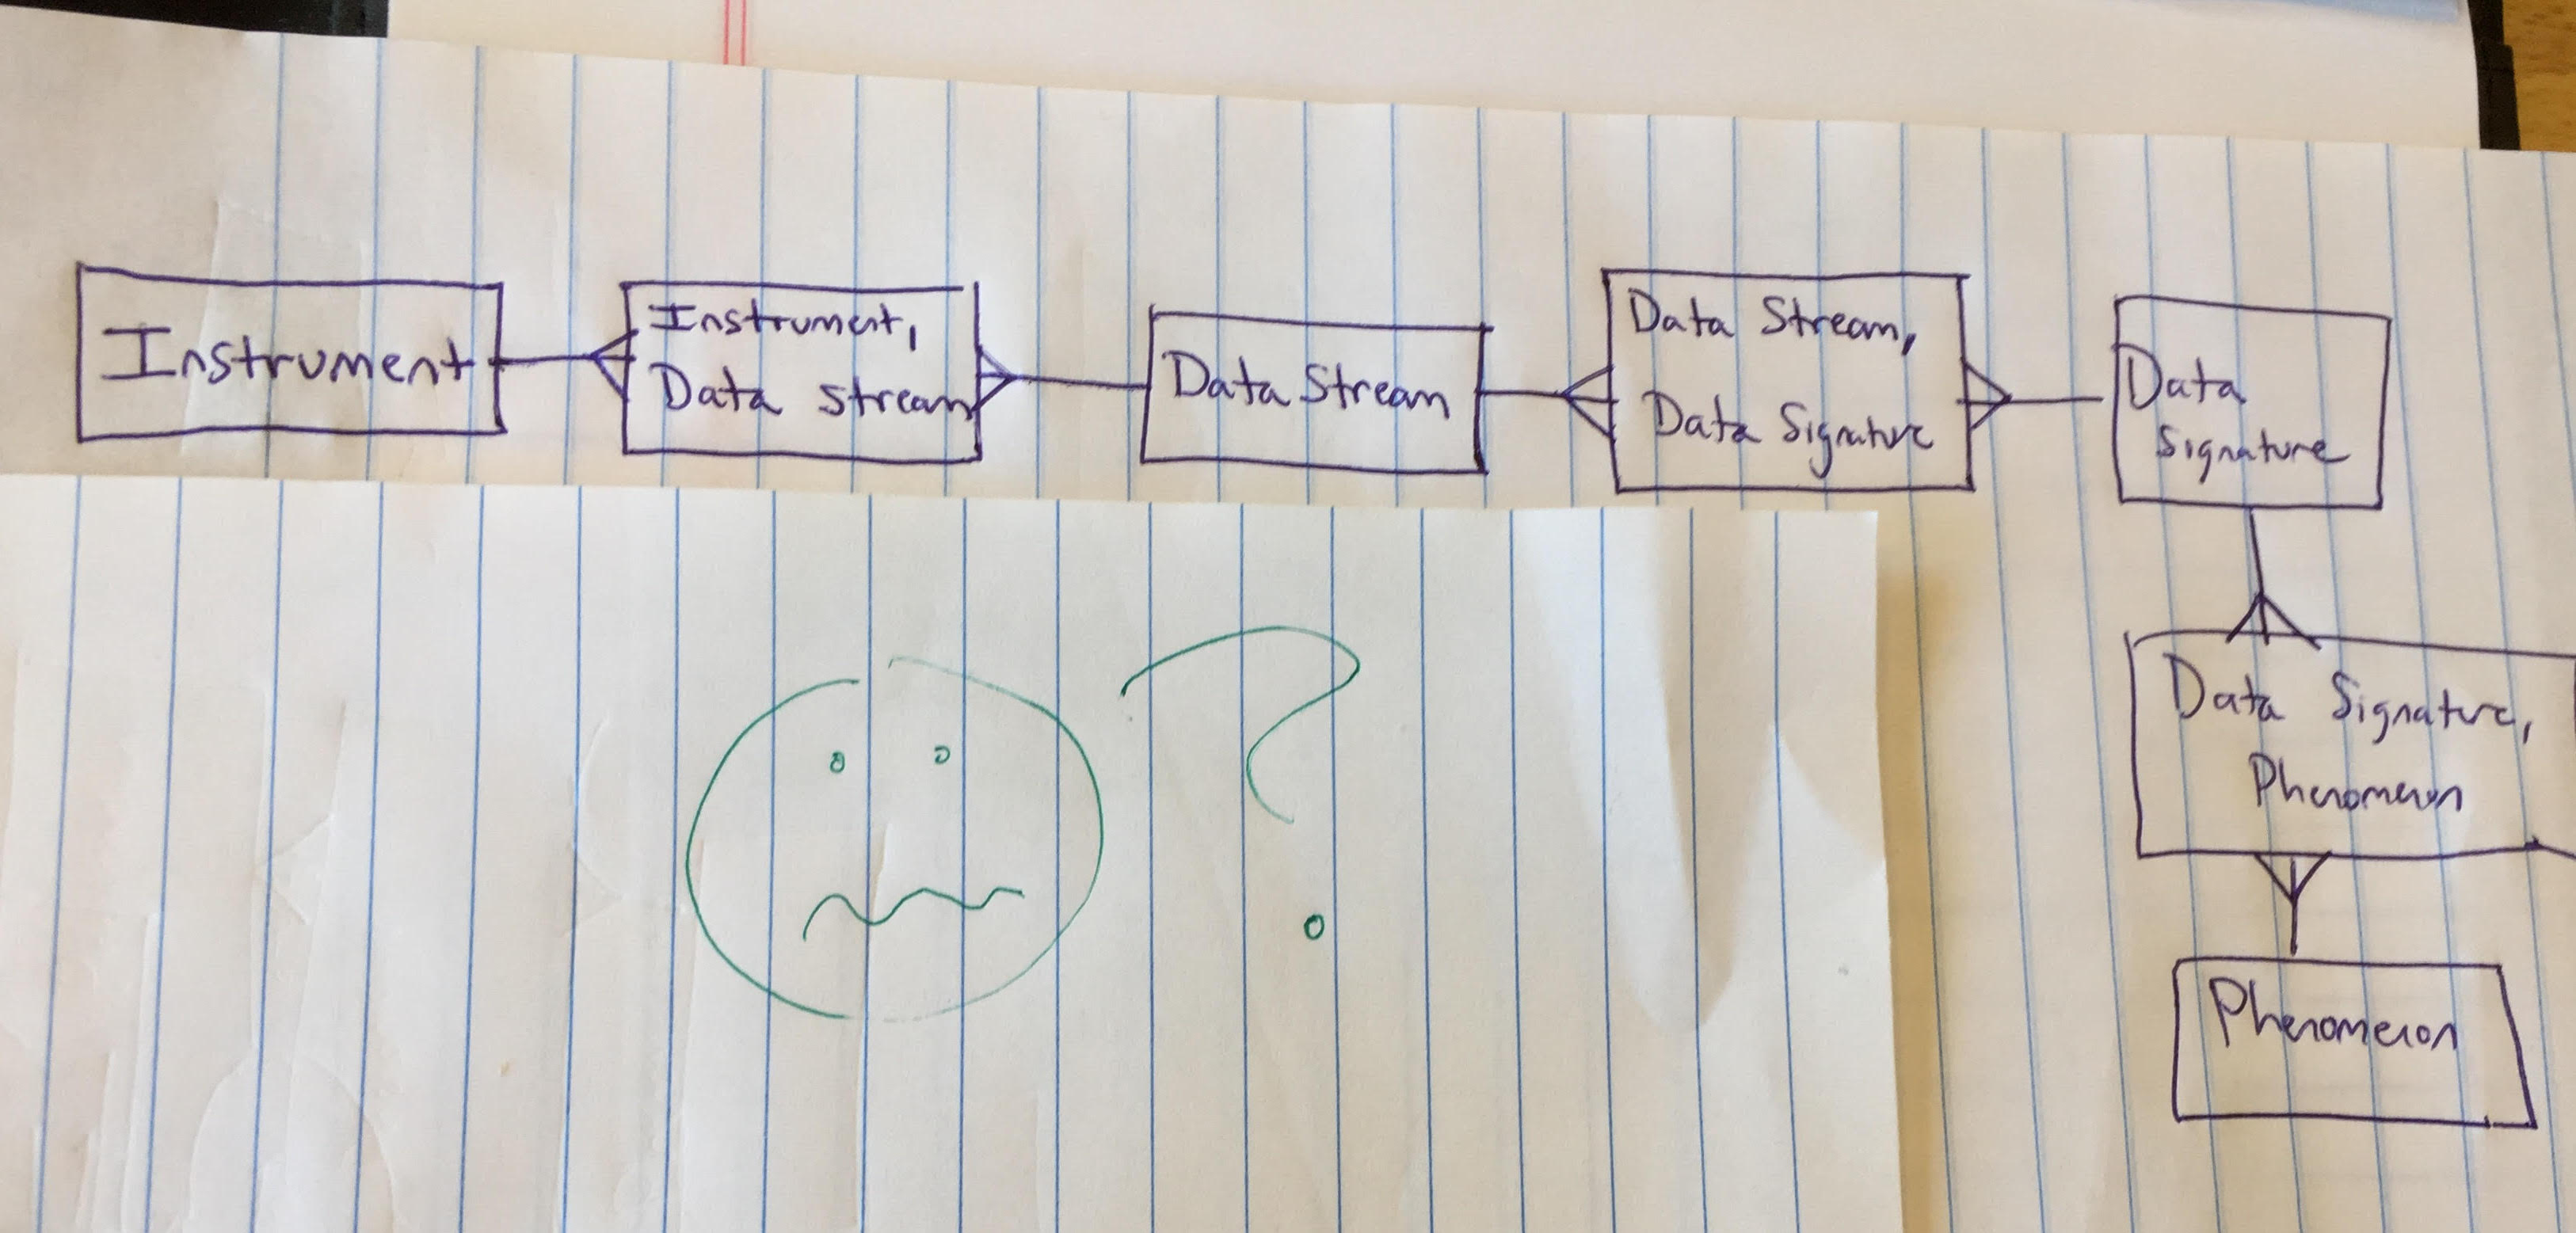 Instrument
Instrument,
Data stream
Data Stream
Data Stream,
Data Signature
Data
Signature
Data Signature,
Phenomenon
Phenomenon
?